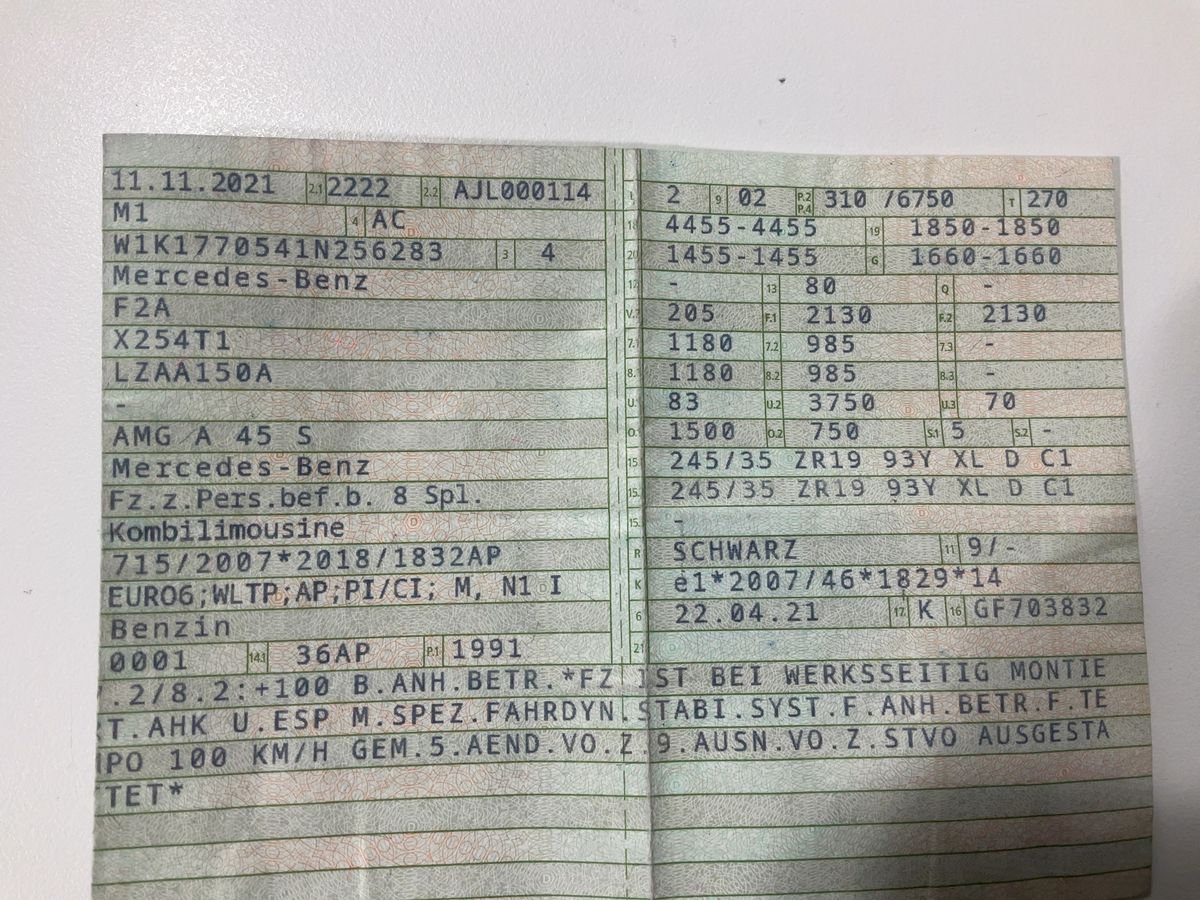 11.11.2021 2.1 2222 2.2 AJL000114
M1 4 AC
W1K1770541N256283 3 4
Mercedes-Benz
F2A
X254T1
LZAA150A
-
AMG A 45 S
Mercedes-Benz
Fz.z.Pers.bef.b. 8 Spl.
Kombilimousine
715/2007*2018/1832AP
EURO6;WLTP;AP;PI/CI; M, N1 I
Benzin
0001 14.1 36AP P.1 1991
L 2 9 02 P.2 P.4 310 /6750 T 270
18 4455-4455 19 1850-1850
20 1455-1455 G 1660-1660
12 - 13 80 Q -
V.7 205 F.1 2130 F.2 2130
7.1 1180 7.2 985 7.3 -
8.1 1180 8.2 985 8.3 -
U.1 83 U.2 3750 U.3 70
O.1 1500 O.2 750 S.1 5 S.2 -
15. 245/35 ZR19 93Y XL D C1
15. 245/35 ZR19 93Y XL D C1
15. -
R SCHWARZ 11 9/-
K e1*2007/46*1829*14
6 22.04.21 17 K 16 GF703832
21
.2/8.2:+100 B.ANH.BETR.*FZ IST BEI WERKSSEITIG MONTIE
RT.AHK U.ESP M.SPEZ.FAHRDYN.STABI.SYST.F.ANH.BETR.F.TE
MPO 100 KM/H GEM.5.AEND.VO.Z.9.AUSN.VO.Z.STVO AUSGESTA
TTET*